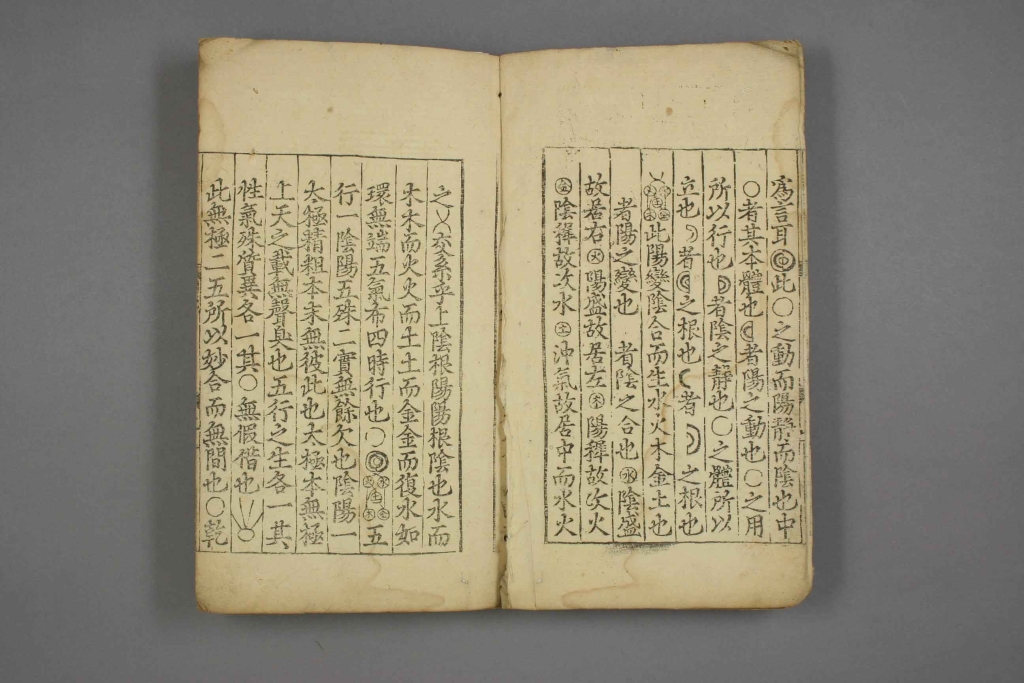 爲言耳◎此○之動而陽靜而陰也中
○者其本體也☽者陽之動也○之用
所以行也☾者陰之靜也○之體所以
立也☽者☾之根也☾者☽之根也
此陽變陰合而生水火木金土也
者陽之變也　者陰之合也㊌陰盛
故居右㊋陽盛故居左㊍陽穉故次火
㊎陰穉故次水㊏沖氣故居中而水火
之交系乎上陰根陽陽根陰也水而
木木而火火而土土而金金而復水如
環無端五氣布四時行也○◎五
行一陰陽五殊二實無餘欠也陰陽一
太極精粗本末無彼此也太極本無極
上天之載無聲臭也五行之生各一其
性氣殊質異各一其○無假偕也○
此無極二五所以妙合而無間也○乾